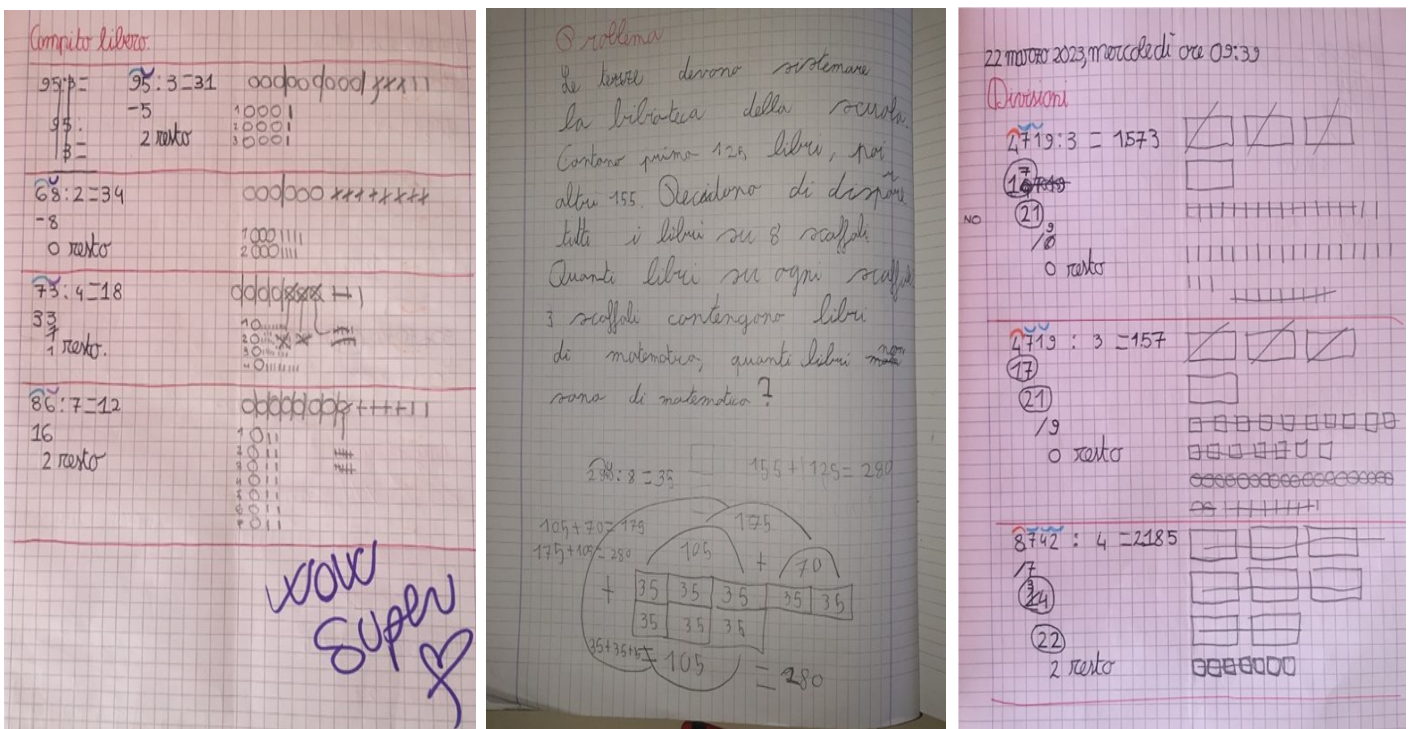 Compito libero.
95:3= 95:3=31
-5
95:
3=
2 resto
1 0001
2 0001
3 0001
68:2=34
-8
0 resto
1 0001111
2 0001111
73:4=18
33
1
1 resto.
86:7=12
16
2 resto
WOW
SUPER
Problema
Le terze devono sistemare
la biblioteca della scuola.
Contano prima 125 libri, poi
altri 155. Decidono di disporre
tutti i libri su 8 scaffali.
Quanti libri su ogni
3 scaffali contengono libri
di matematica, quanti libri non
sono di matematica?
280:8=35 155+125=280
105+70=175
175+105=280
175
105 + 70
+ 35 35 35 35 35
35 35 35
35+35+35=105 =280
22 marzo 2023, mercoledì ore 09:39
Divisioni
4719:3=1573
17
NO
21
9
0 resto
4719:3=157
17
21
/9
0 resto
8742:4=2185
/7
34
22
2 resto